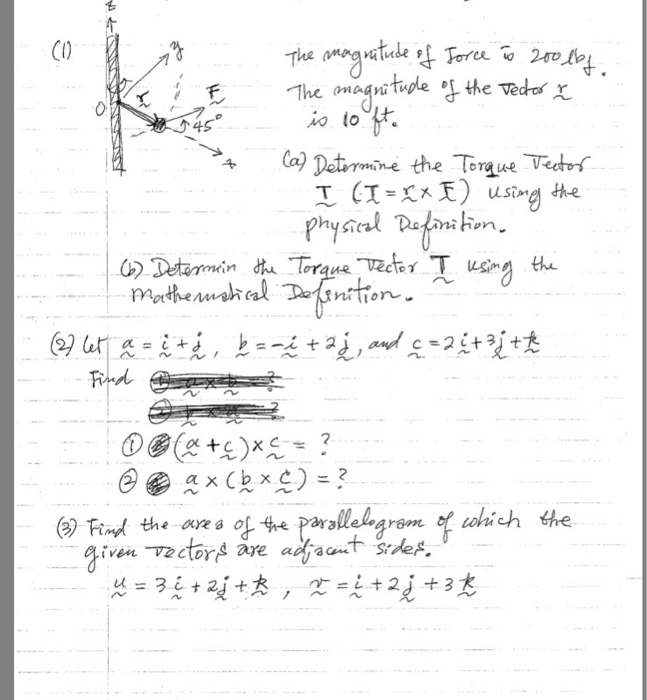 z
(1)
y
The magnitude of Force is 200 lbf.
r
F
The magnitude of the Vector r
O
45°
is 10 ft.
x
(a) Determine the Torque Vector
T (T = r x F) using the
physical Definition.
(b) Determin the Torque Vector T using the
mathematical Definition.
(2) Let a = i + j, b = -i + 2j, and c = 2i + 3j + k
Find
① (a + c) x c = ?
② a x (b x c) = ?
(3) Find the area of the parallelogram of which the
given vectors are adjacent sides.
u = 3i + 2j + k, v = i + 2j + 3k